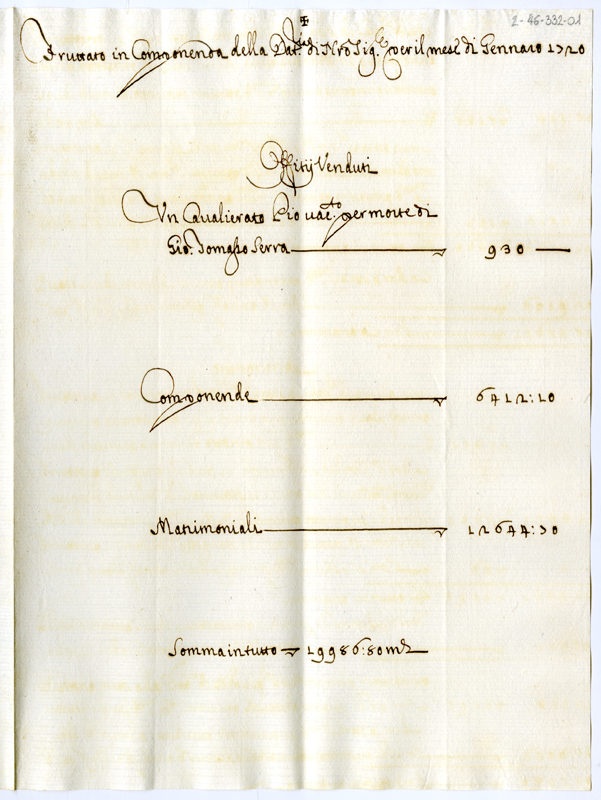 2-46-332-01
✠
Fruttato in Componenda della Dat.ria di Nro Sig.re per il mese di Gennaio 1720
Offitij Venduti
Un Cavalierato Pio vac.to per morte di
Gio: Tomasso Serra 930
Componende 6412:10
Matrimoniali 12644:30
Somma in tutto 19986:80 m.ta